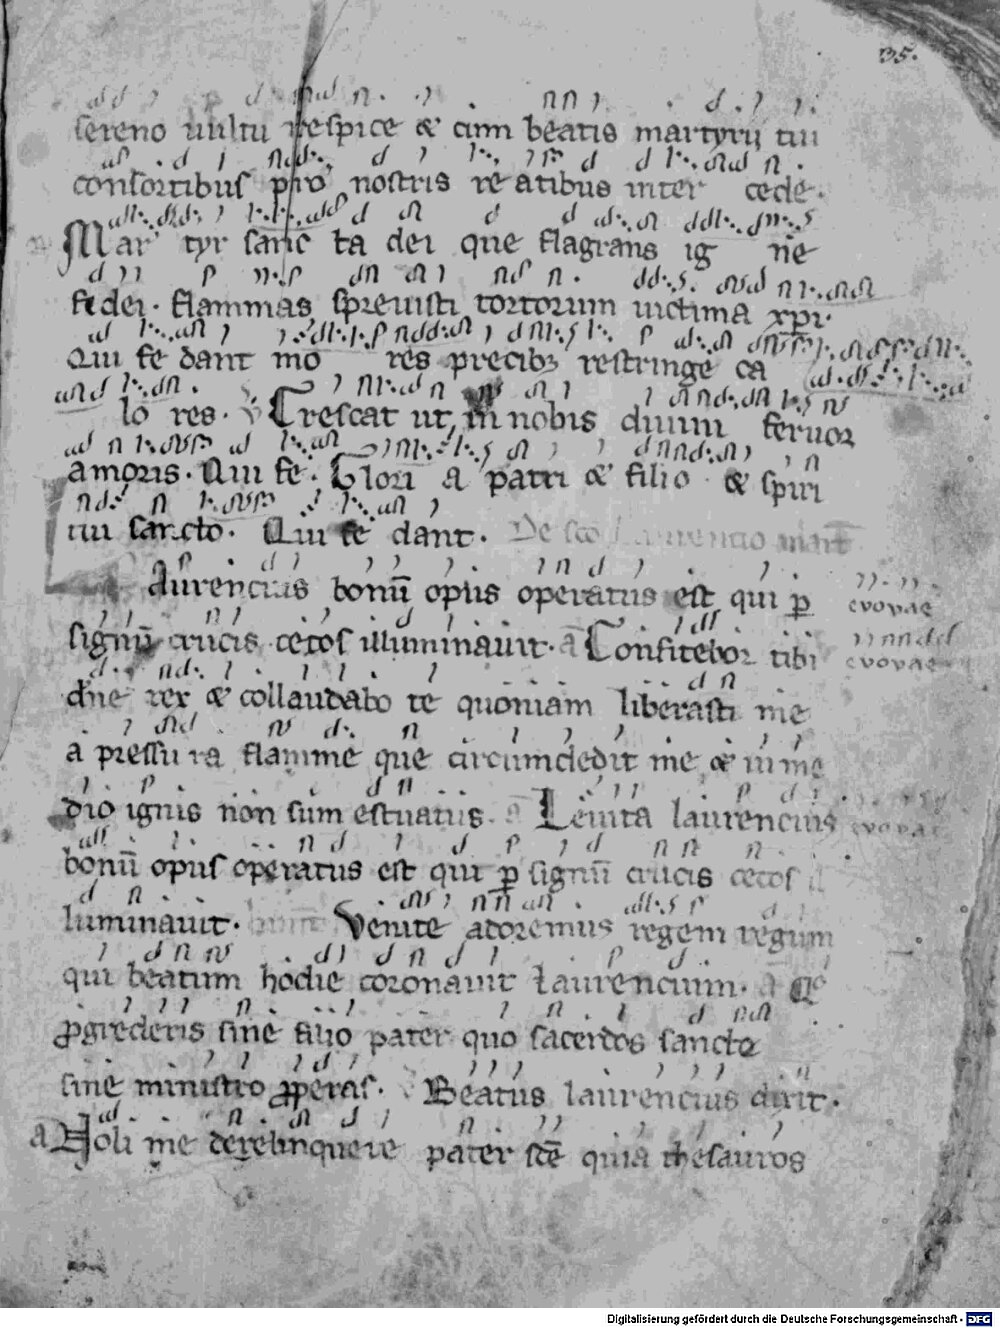 35.
sereno uultu respice & cum beatis martyrij tui
consortibus pro nostris reatibus inter cede.
Martyr sancta dei que flagrans igne
fidei. flammas spreuisti tortorum uictima xpi.
Qui se dant mores precibꝫ restringe ca
lores. V Crescat ut in nobis diuini feruor
amoris. Qui se. Glori a patri & filio & spiri
tui sancto. Qui se dant. De sco Laurentio mart
Laurencius bonū opus operatus est qui ꝑ euouae
signū crucis cecos illuminauit. a Confitebor tibi euouae
dne rex & collaudabo te quoniam liberasti me
a pressura flamme que circumdedit me & in me
dio ignis non sum estuatus. a Leuita laurencius euouae
bonū opus operatus est qui ꝑ signū crucis cecos il
luminauit. Venite adoremus regem regum
qui beatum hodie coronauit laurencium. a Q°
ꝓgrederis sine filio pater quo sacerdos sancte
sine ministro ꝓperas. Beatus laurencius dixit.
a Noli me derelinquere pater scē quia thesauros
Digitalisierung gefördert durch die Deutsche Forschungsgemeinschaft - DFG